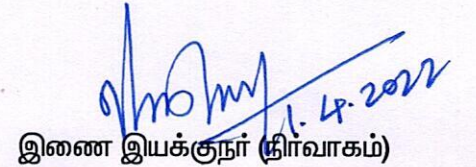 1.4.2022
இணை இயக்குநர் (நிர்வாகம்)